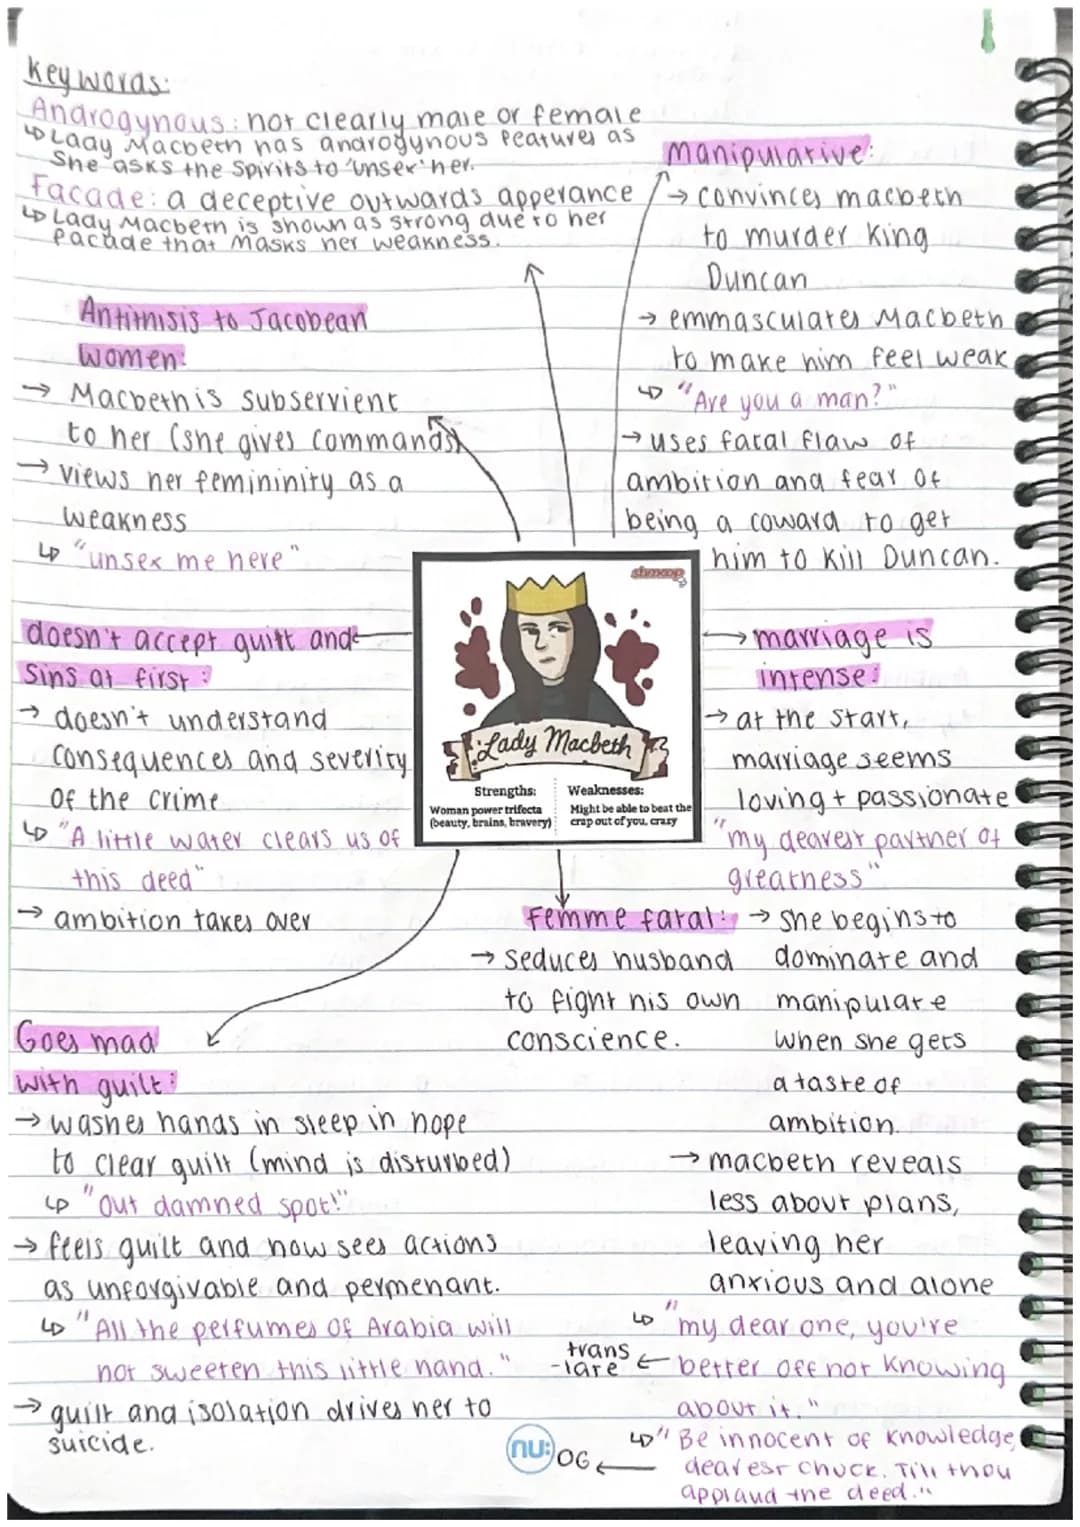 Key words:
Androgynous: not clearly male or female
↳ Lady Macbeth has androgynous features as
She asks the Spirits to 'unsex' her.
Facade: a deceptive outwards apperance
↳ Lady Macbeth is shown as strong due to her
facade that masks her weakness.
Antithisis to Jacobean
women:
→ Macbeth is subservient
to her (she gives commands)
→ views her femininity as a
weakness
↳ "unsex me here"
Manipulative:
→ convinces macbeth
to murder King
Duncan
→ emmasculates Macbeth
to make him feel weak
↳ "Are you a man?"
→ uses fatal flaw of
ambition and fear of
being a coward to get
him to kill Duncan.
doesn't accept guilt and
sins at first:
→ doesn't understand
consequences and severity
of the crime
↳ "A little water clears us of
this deed"
→ ambition takes over
shmoop
Lady Macbeth
Strengths:
Woman power trifecta
(beauty, brains, bravery)
Weaknesses:
Might be able to beat the
crap out of you, crazy
marriage is
intense:
→ at the start,
marriage seems
loving + passionate
"my dearest partner of
greatness"
→ she begins to
dominate and
manipulate
when she gets
a taste of
ambition.
→ macbeth reveals
less about plans,
leaving her
anxious and alone
↳ "my dear one, you're
better off not knowing
about it."
trans
-late ←
↳ "Be innocent of knowledge,
dearest chuck. Till thou
applaud the deed."
OG ←
Femme fatal:
→ seduces husband
to fight his own
conscience.
Goes mad
with guilt:
→ washes hands in sleep in hope
to clear guilt (mind is disturbed)
↳ "Out damned spot!"
→ feels guilt and now sees actions
as unforgivable and permenant.
↳ "All the perfumes of Arabia will
not sweeten this little hand."
→ guilt and isolation drives her to
suicide.
nu: